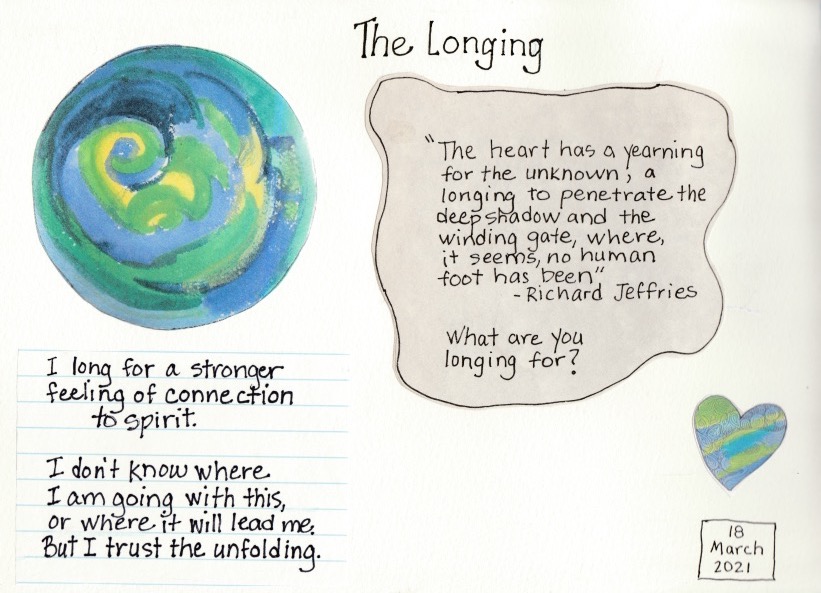 The Longing
"The heart has a yearning
for the unknown; a
longing to penetrate the
deep shadow and the
winding gate, where,
it seems, no human
foot has been"
-Richard Jeffries
What are you
longing for?
I long for a stronger
feeling of connection
to spirit.
I don't know where
I am going with this,
or where it will lead me.
But I trust the unfolding.
18
March
2021